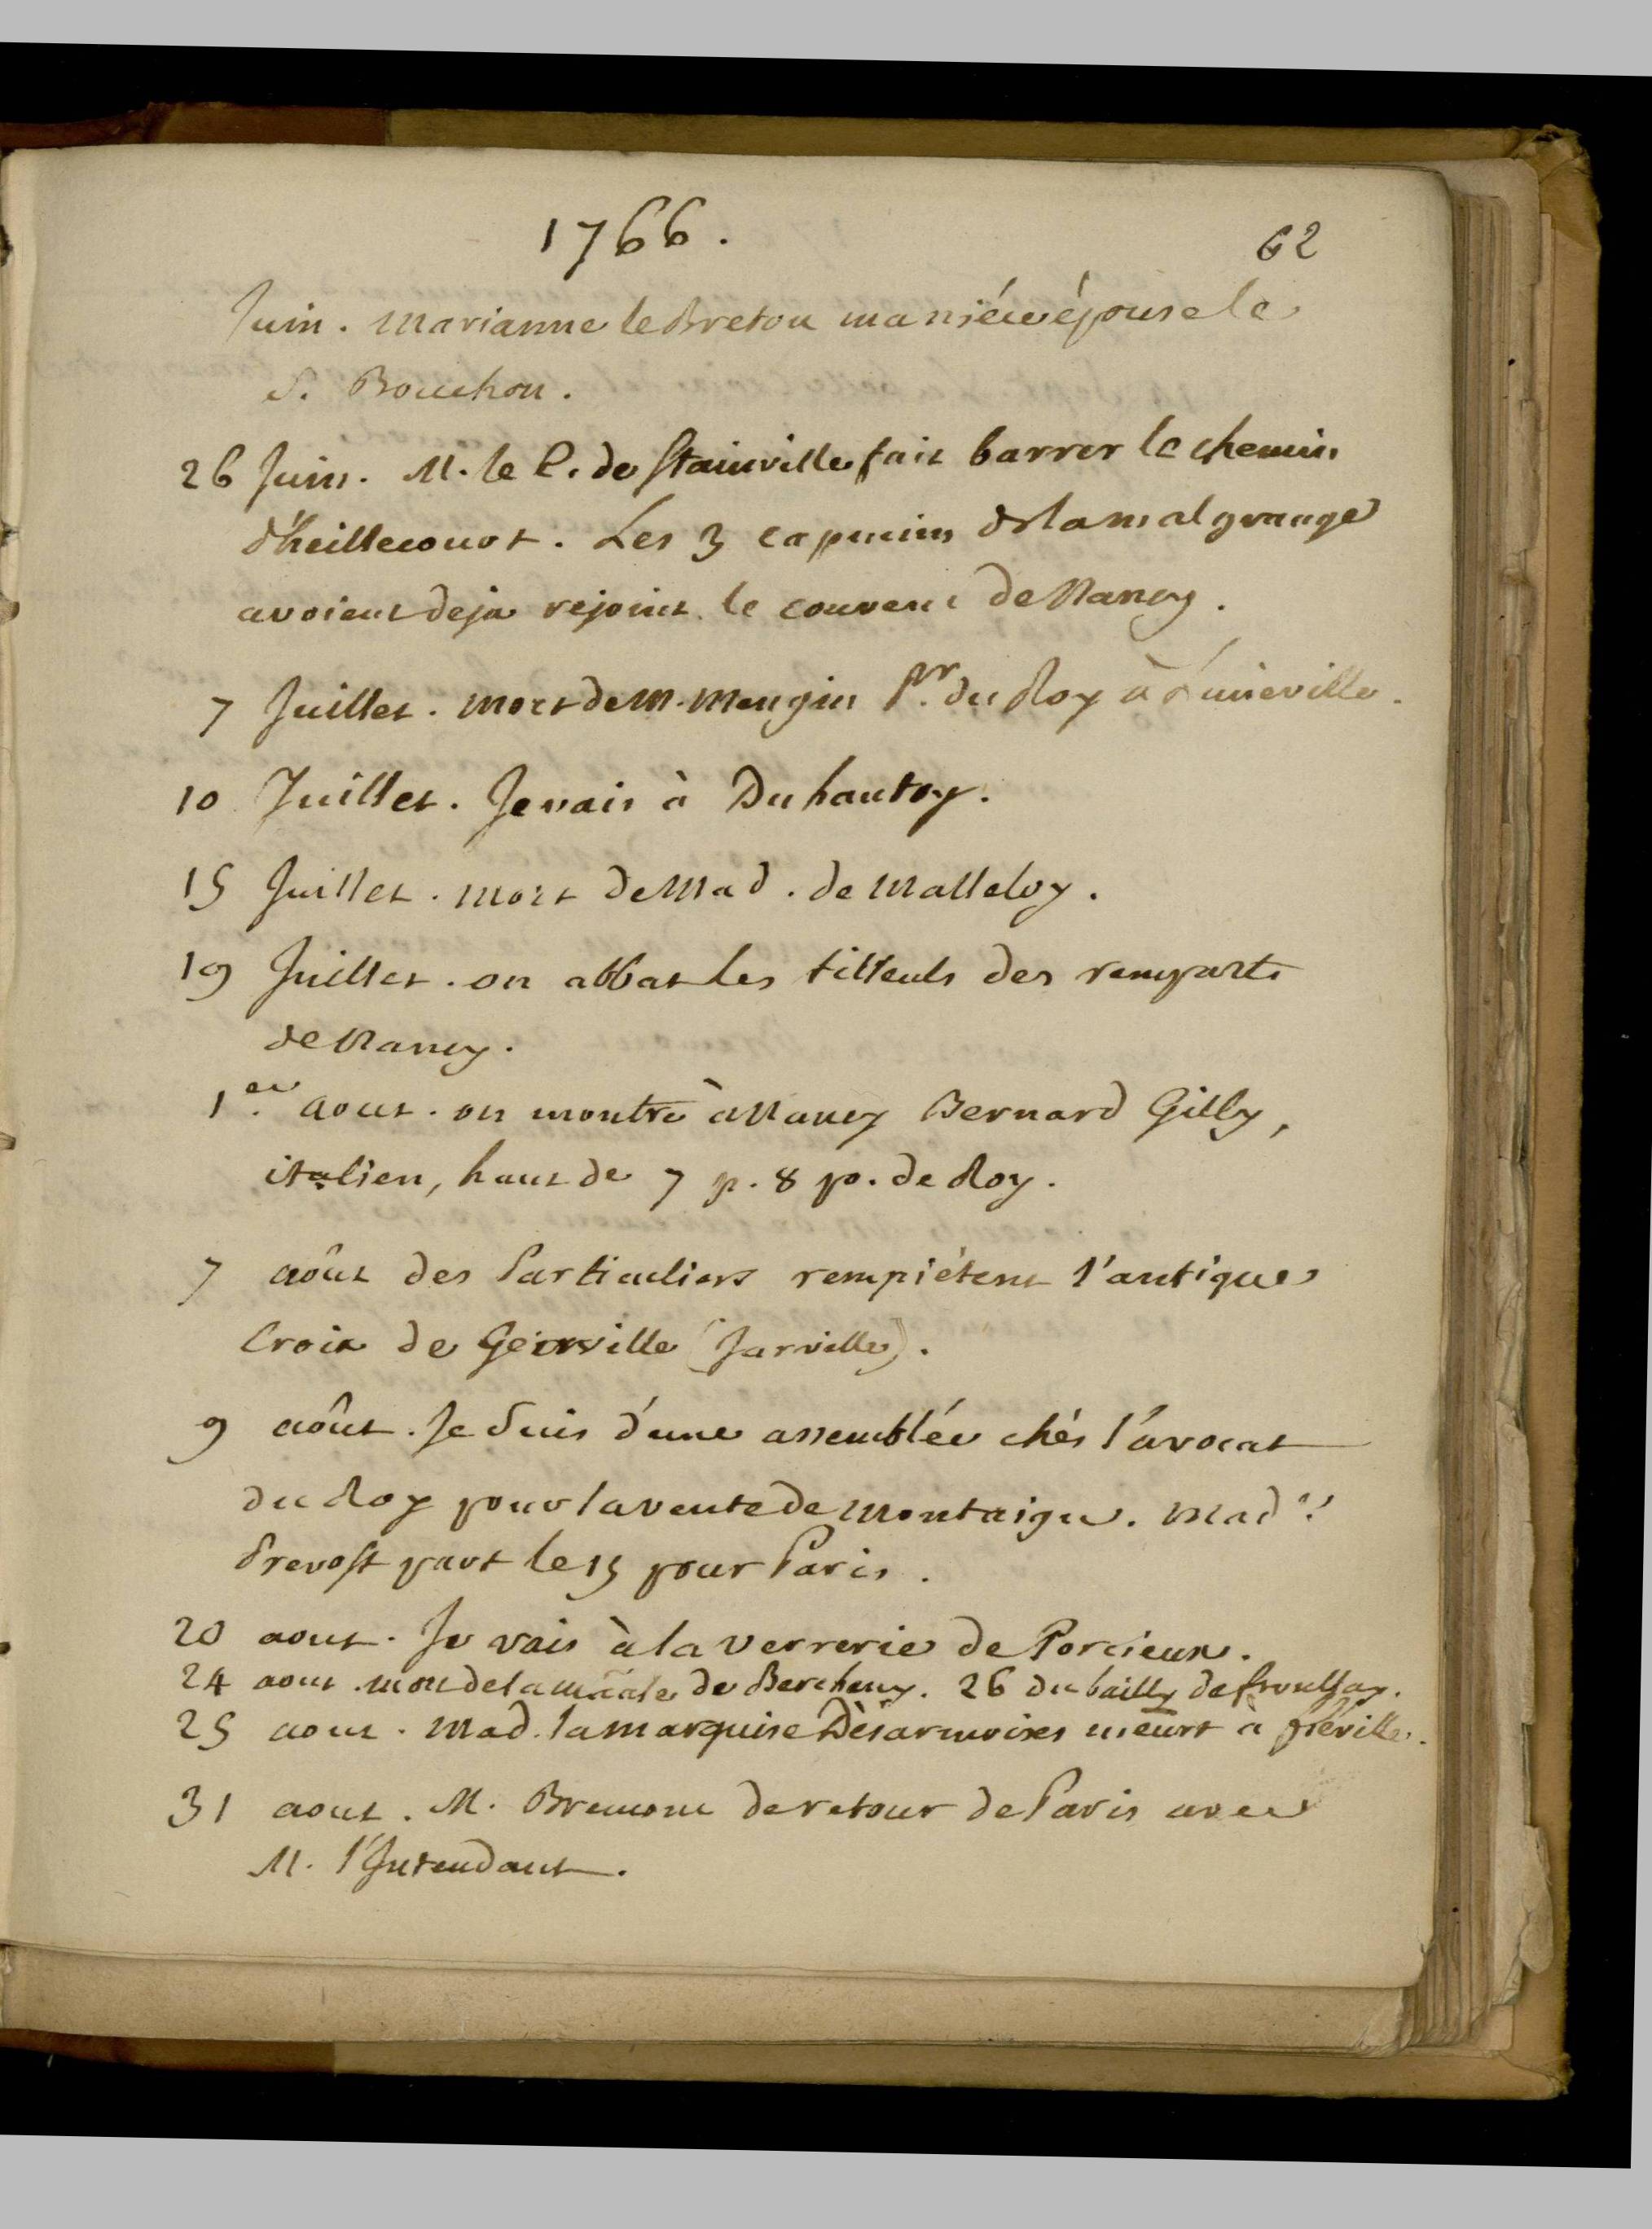 1766.
62
Juin. Marianne le Breton ma niéce épouse le
S. Bouchon.
26 Juin. M. le C. de Stainville fait barrer le chemin
d'heillecourt. Les 3 capucins de la malgrange
avoient deja rejoint le couvent de Nancy.
7 Juillet. mort de M. Mengin Pr. du Roy à Luneville.
10 Juillet. Je vais à Duhautoy.
15 Juillet. mort de Mad. de Malleloy.
19 Juillet. on abbat les tilleuls des remparts
de Nancy.
1er. aout. on montre à Nancy Bernard Gilly,
italien, haut de 7 p. 8 po. de Roy.
7 août des Particuliers rempiétent l'antique
Croix de Gerville (Jarville).
9 août. Je suis d'une assemblée chés l'avocat
du Roy pour la vente de Montaigu. Mad.e
Prevost part le 15 pour Paris.
20 aout. Je vais à la verrerie de Porcieux.
24 aout. mort de la mãale de Bercheny. 26 du bailly de froullay.
25 aout. Mad. la marquise Désarmoises meurt à fléville.
31 aout. M. Bremont de retour de Paris avec
M. l'Intendant.